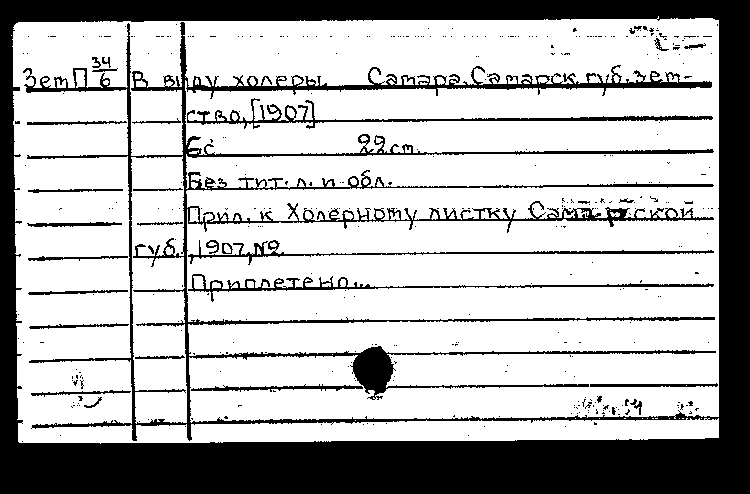 Зет П 34/6 В виду холеры. Самара. Самарск. губ. зем-
ство, [1907]
6с 22 см.
Без тит. л. и обл.
Прил. к Холерному листку Самарской
губ., 1907, №2
Приплетено...